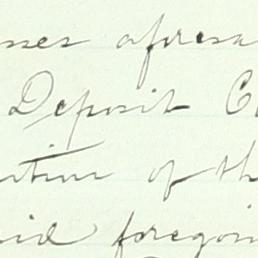 sses aforesa
Deposit C
ution of th
id foregoin